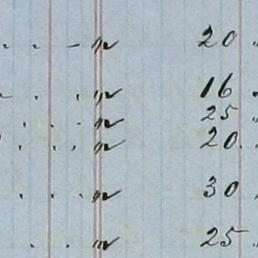 . . . " 20 "
. . . " 16 .
. . . " 25 "
. . . " 20. "
. . . " 30 "
. . . " 25 "